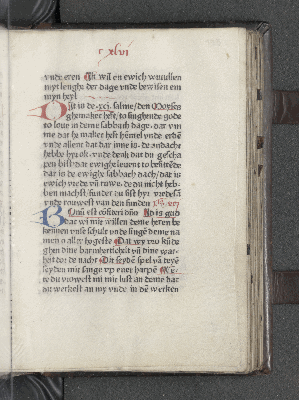 xlvi
vnde eren Ik wil en ewich vurullen
myt lenghe der dage vnde bewisen em
myn heyl
Dyt in de xcj. salme den Moyses
ghemaket heft to singhende gode
to loue in deme sabbath dage dar vm
me dat he maket heft hemel vnde erde
vnde allent dat dar inne is de andacht
hebbe hyr ok vnde denk dat du gescha
pen bist dar ewighe leuent to besittende
dar in de ewighe sabbath dach dar is
ewich vrede vn ruwe de du nicht heb-
ben macht sunder du sist hyr vredesā
vnde rouwest van den sunden
Bonū est cōfiteri dūo Id is gud
dat wi mit willen deme heren be
kennen vnde schule vnde singe deme na
men o alder hogeste Dat wy vro kūde
ghen dine barmherticheit vn dine war-
heit dor de nacht Dat seyden spel vn teyē
seyden mit sange vp ener harpe We-
te du vrowest mi mit lust an deme dat
du werkest an my vnde in dē werken